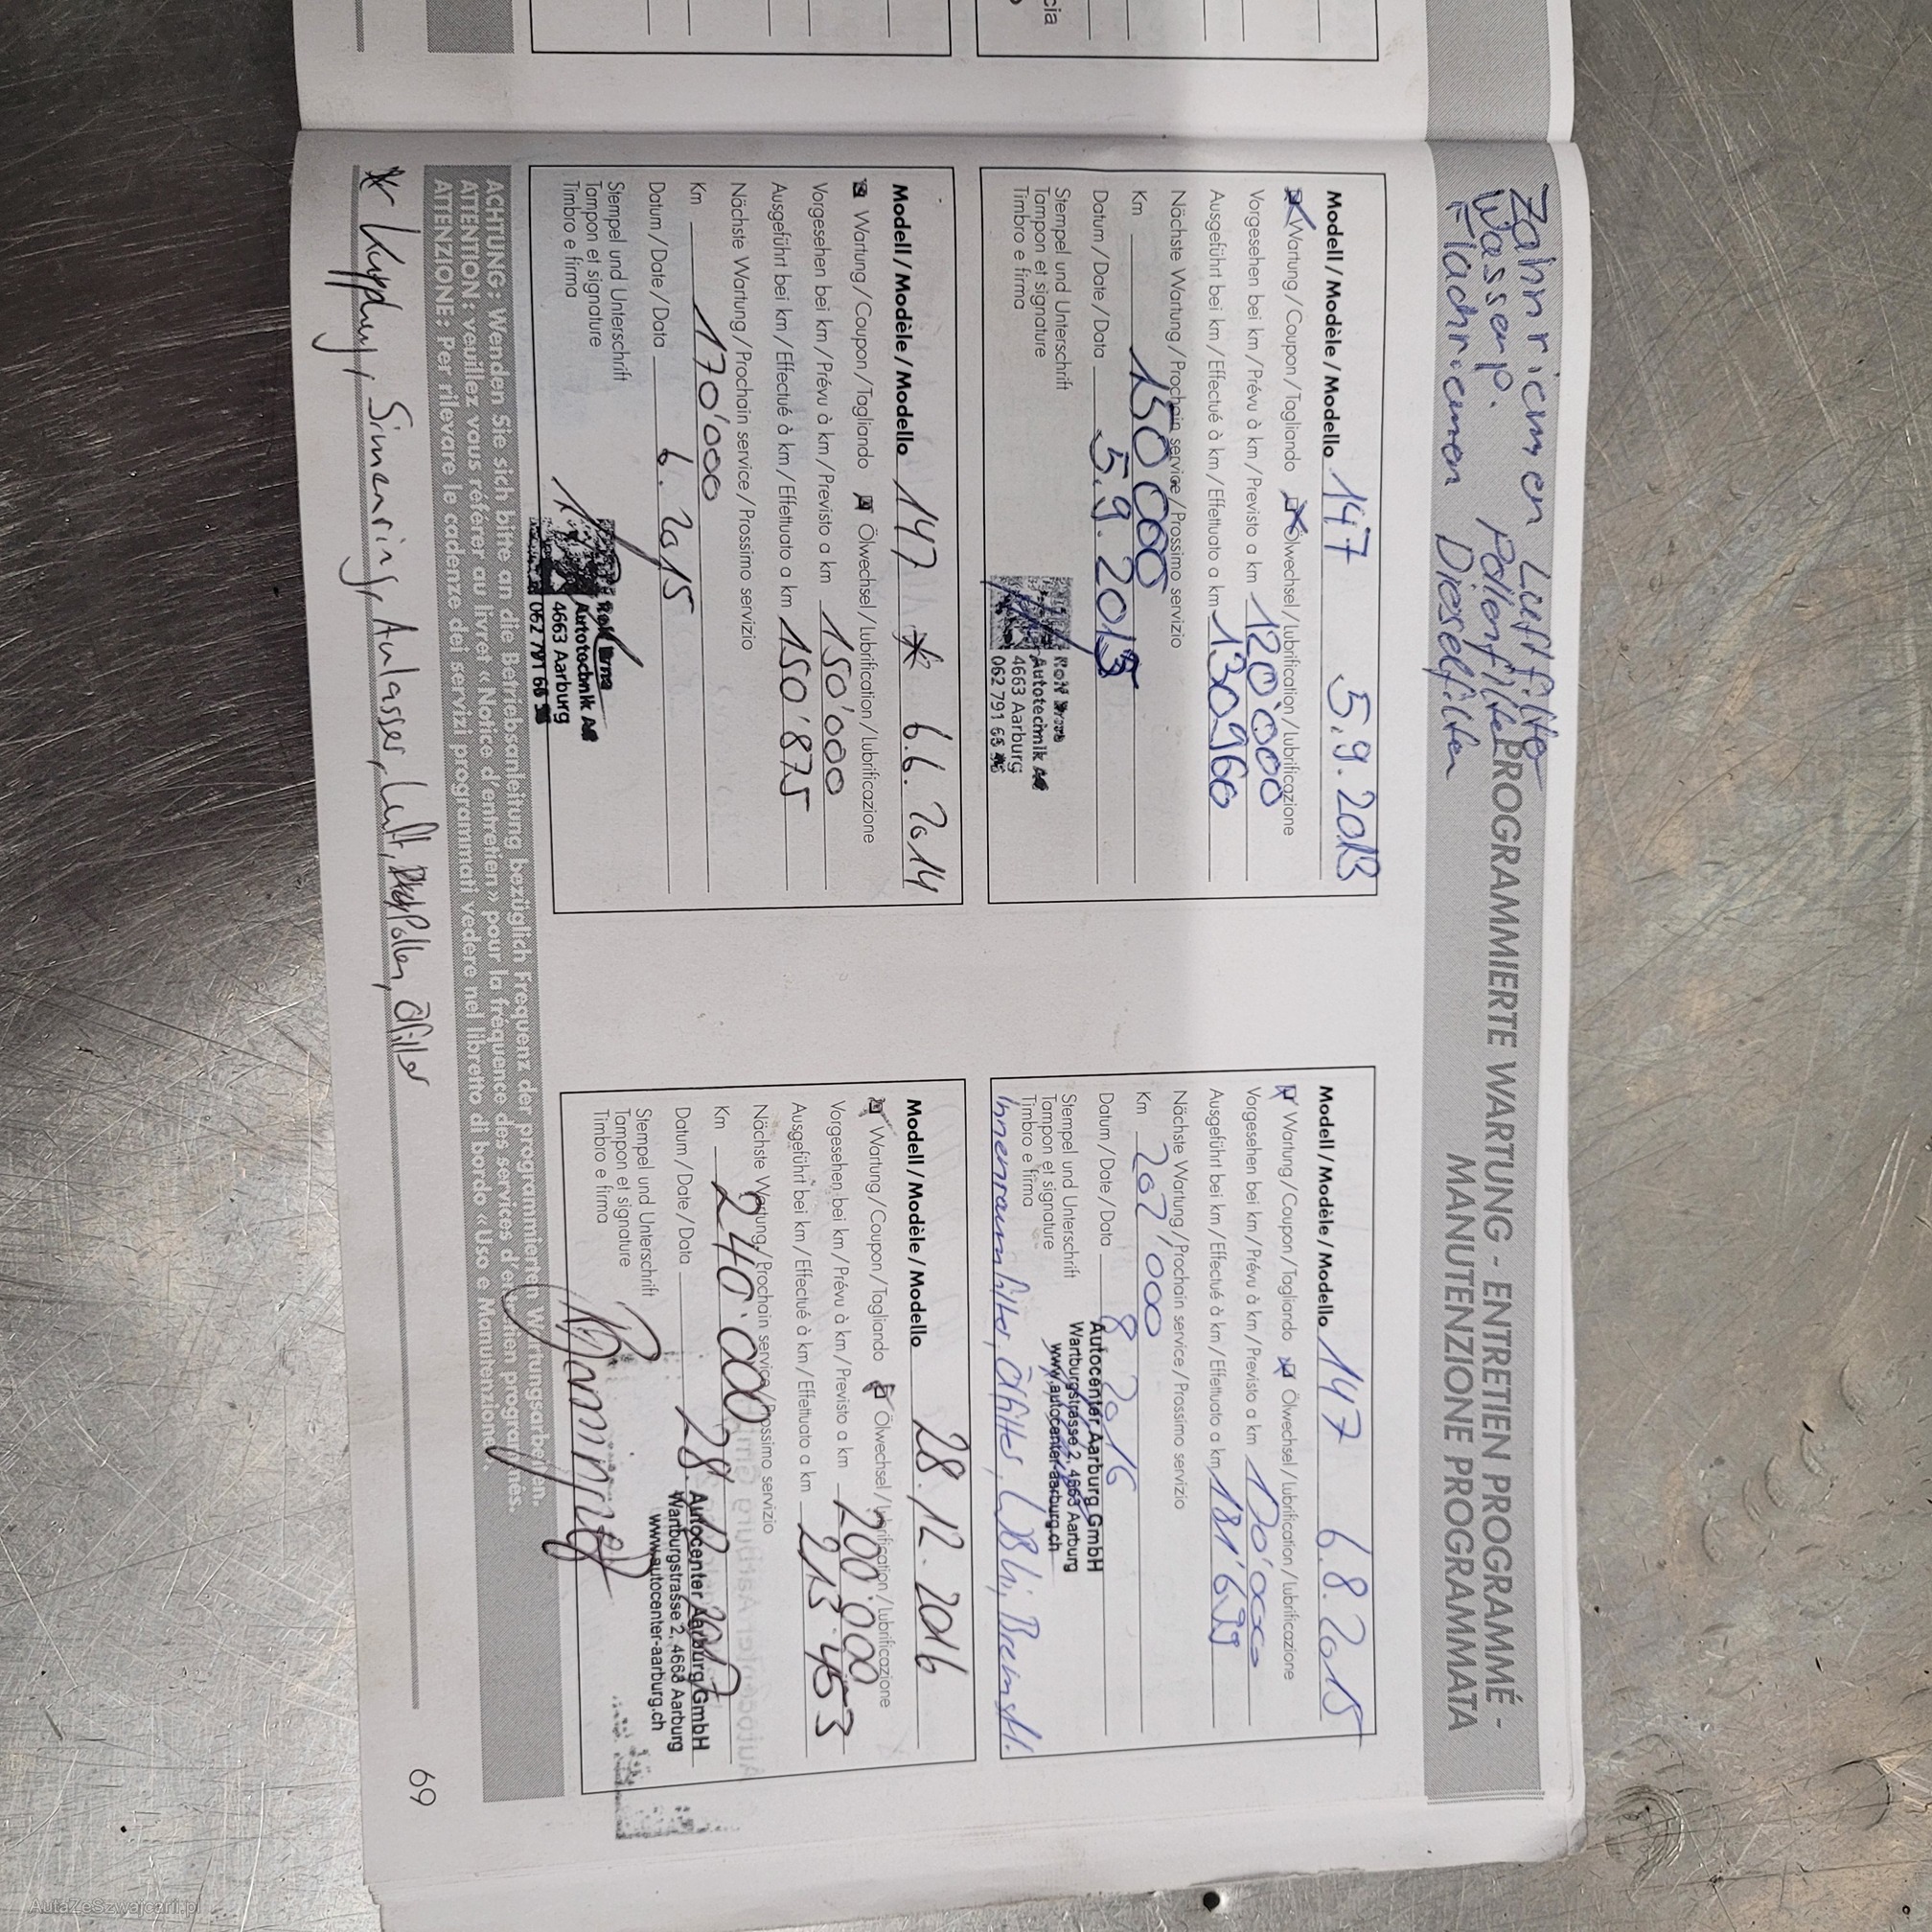 cia
Zahnriemen Luftfilter
Wasserp. Pollenfilter
Flachriemen Dieselfilter
PROGRAMMIERTE WARTUNG - ENTRETIEN PROGRAMMÉ -
MANUTENZIONE PROGRAMMATA
Modell / Modèle / Modello 147 5.9.2013
Wartung / Coupon / Tagliando Ölwechsel / Lubrification / Lubrificazione
Vorgesehen bei km / Prévu à km / Previsto a km 120'000
Ausgeführt bei km / Effectué à km / Effettuato a km 130960
Nächste Wartung / Prochain service / Prossimo servizio
Km 150000
Datum / Date / Data 5.9.2015
Stempel und Unterschrift
Tampon et signature
Timbro e firma
Autotechnik AG
4663 Aarburg
062 791 65
Modell / Modèle / Modello 147 * 6.6.2014
Wartung / Coupon / Tagliando Ölwechsel / Lubrification / Lubrificazione
Vorgesehen bei km / Prévu à km / Previsto a km 150'000
Ausgeführt bei km / Effectué à km / Effettuato a km 150'875
Nächste Wartung / Prochain service / Prossimo servizio
Km 170'000
Datum / Date / Data 6.2015
Stempel und Unterschrift
Tampon et signature
Timbro e firma
Autotechnik AG
4663 Aarburg
062 791 65
Modell / Modèle / Modello 147 6.8.2015
Wartung / Coupon / Tagliando Ölwechsel / Lubrification / Lubrificazione
Vorgesehen bei km / Prévu à km / Previsto a km 170'000
Ausgeführt bei km / Effectué à km / Effettuato a km 181'699
Nächste Wartung / Prochain service / Prossimo servizio
Km 202'000
Datum / Date / Data 8 2016
Stempel und Unterschrift
Tampon et signature
Timbro e firma
Autocenter Aarburg GmbH
Wartburgstrasse 2, 4663 Aarburg
www.autocenter-aarburg.ch
Innenraumfilter, Ölfilter,
Modell / Modèle / Modello 28.12.2016
Wartung / Coupon / Tagliando Ölwechsel / Lubrification / Lubrificazione
Vorgesehen bei km / Prévu à km / Previsto a km 200'000
Ausgeführt bei km / Effectué à km / Effettuato a km 213'453
Nächste Wartung / Prochain service / Prossimo servizio
Km 240'000
Datum / Date / Data 28.12.2017
Stempel und Unterschrift
Tampon et signature
Timbro e firma
Autocenter Aarburg GmbH
Wartburgstrasse 2, 4663 Aarburg
www.autocenter-aarburg.ch
ACHTUNG: Wenden Sie sich bitte an die Betriebsanleitung bezüglich Frequenz der programmierten Wartungsarbeiten.
ATTENTION: veuillez vous référer au livret «Notice d'entretien» pour la fréquence des services d'entretien programmés.
ATTENZIONE: Per rilevare le cadenze dei servizi programmati vedere nel libretto di bordo «Uso e Manutenzione».
* Kupplung, Simmerring, Anlasser, Luft, Pollen, Ölfilter
69
AutaZeSzwajcarii.pl